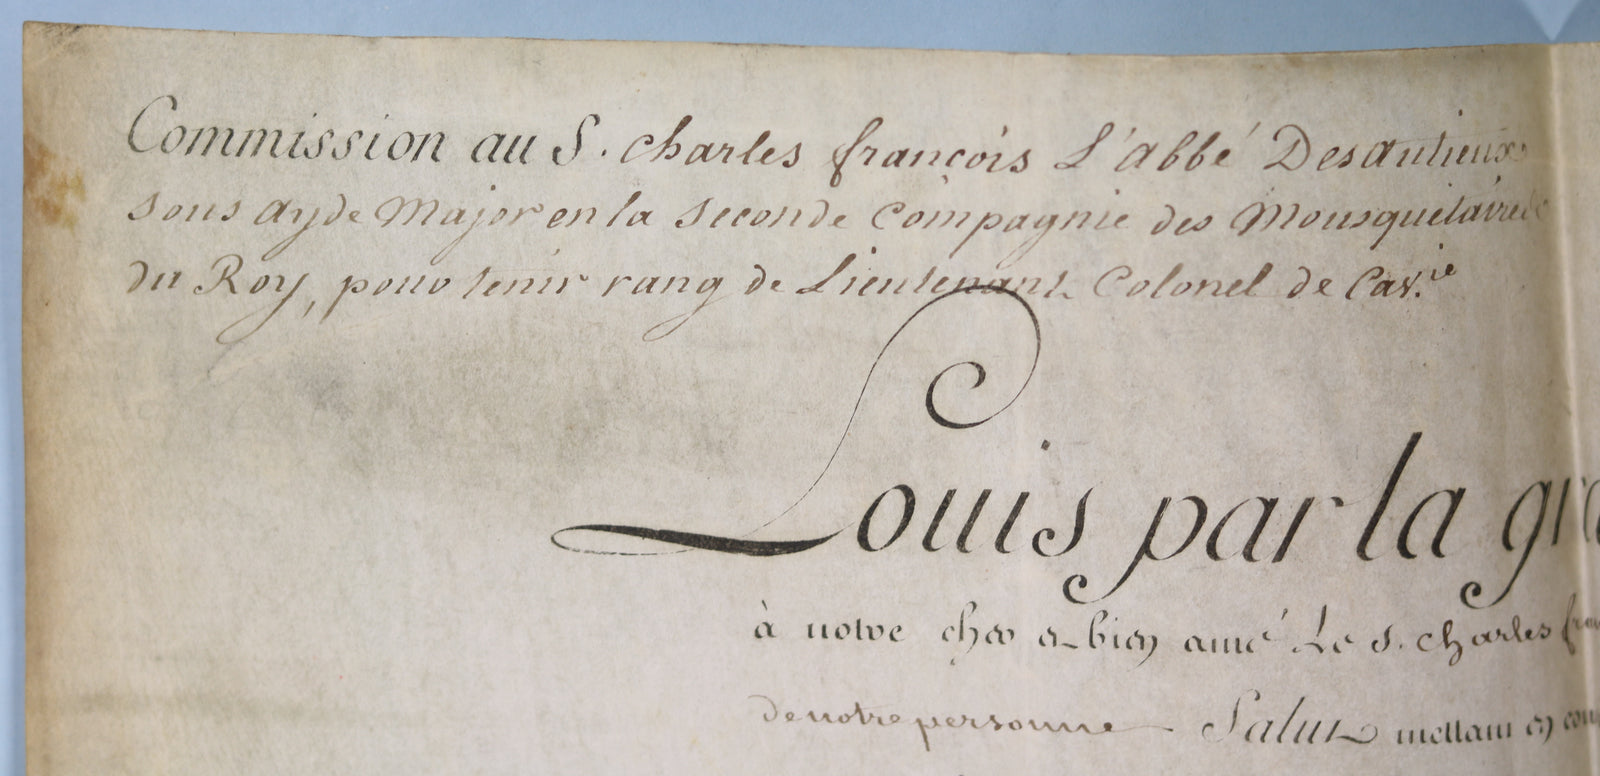 Commission au S. Charles françois L'abbé Desautieux
sous ayde Major en la seconde Compagnie des Mousquetaires
du Roy, pour tenir rang de Lieutenant Colonel de Cav.ie
Louis par la gra
à notre cher et bien amé Le S. Charles fran
de notre personne Salut mettant en